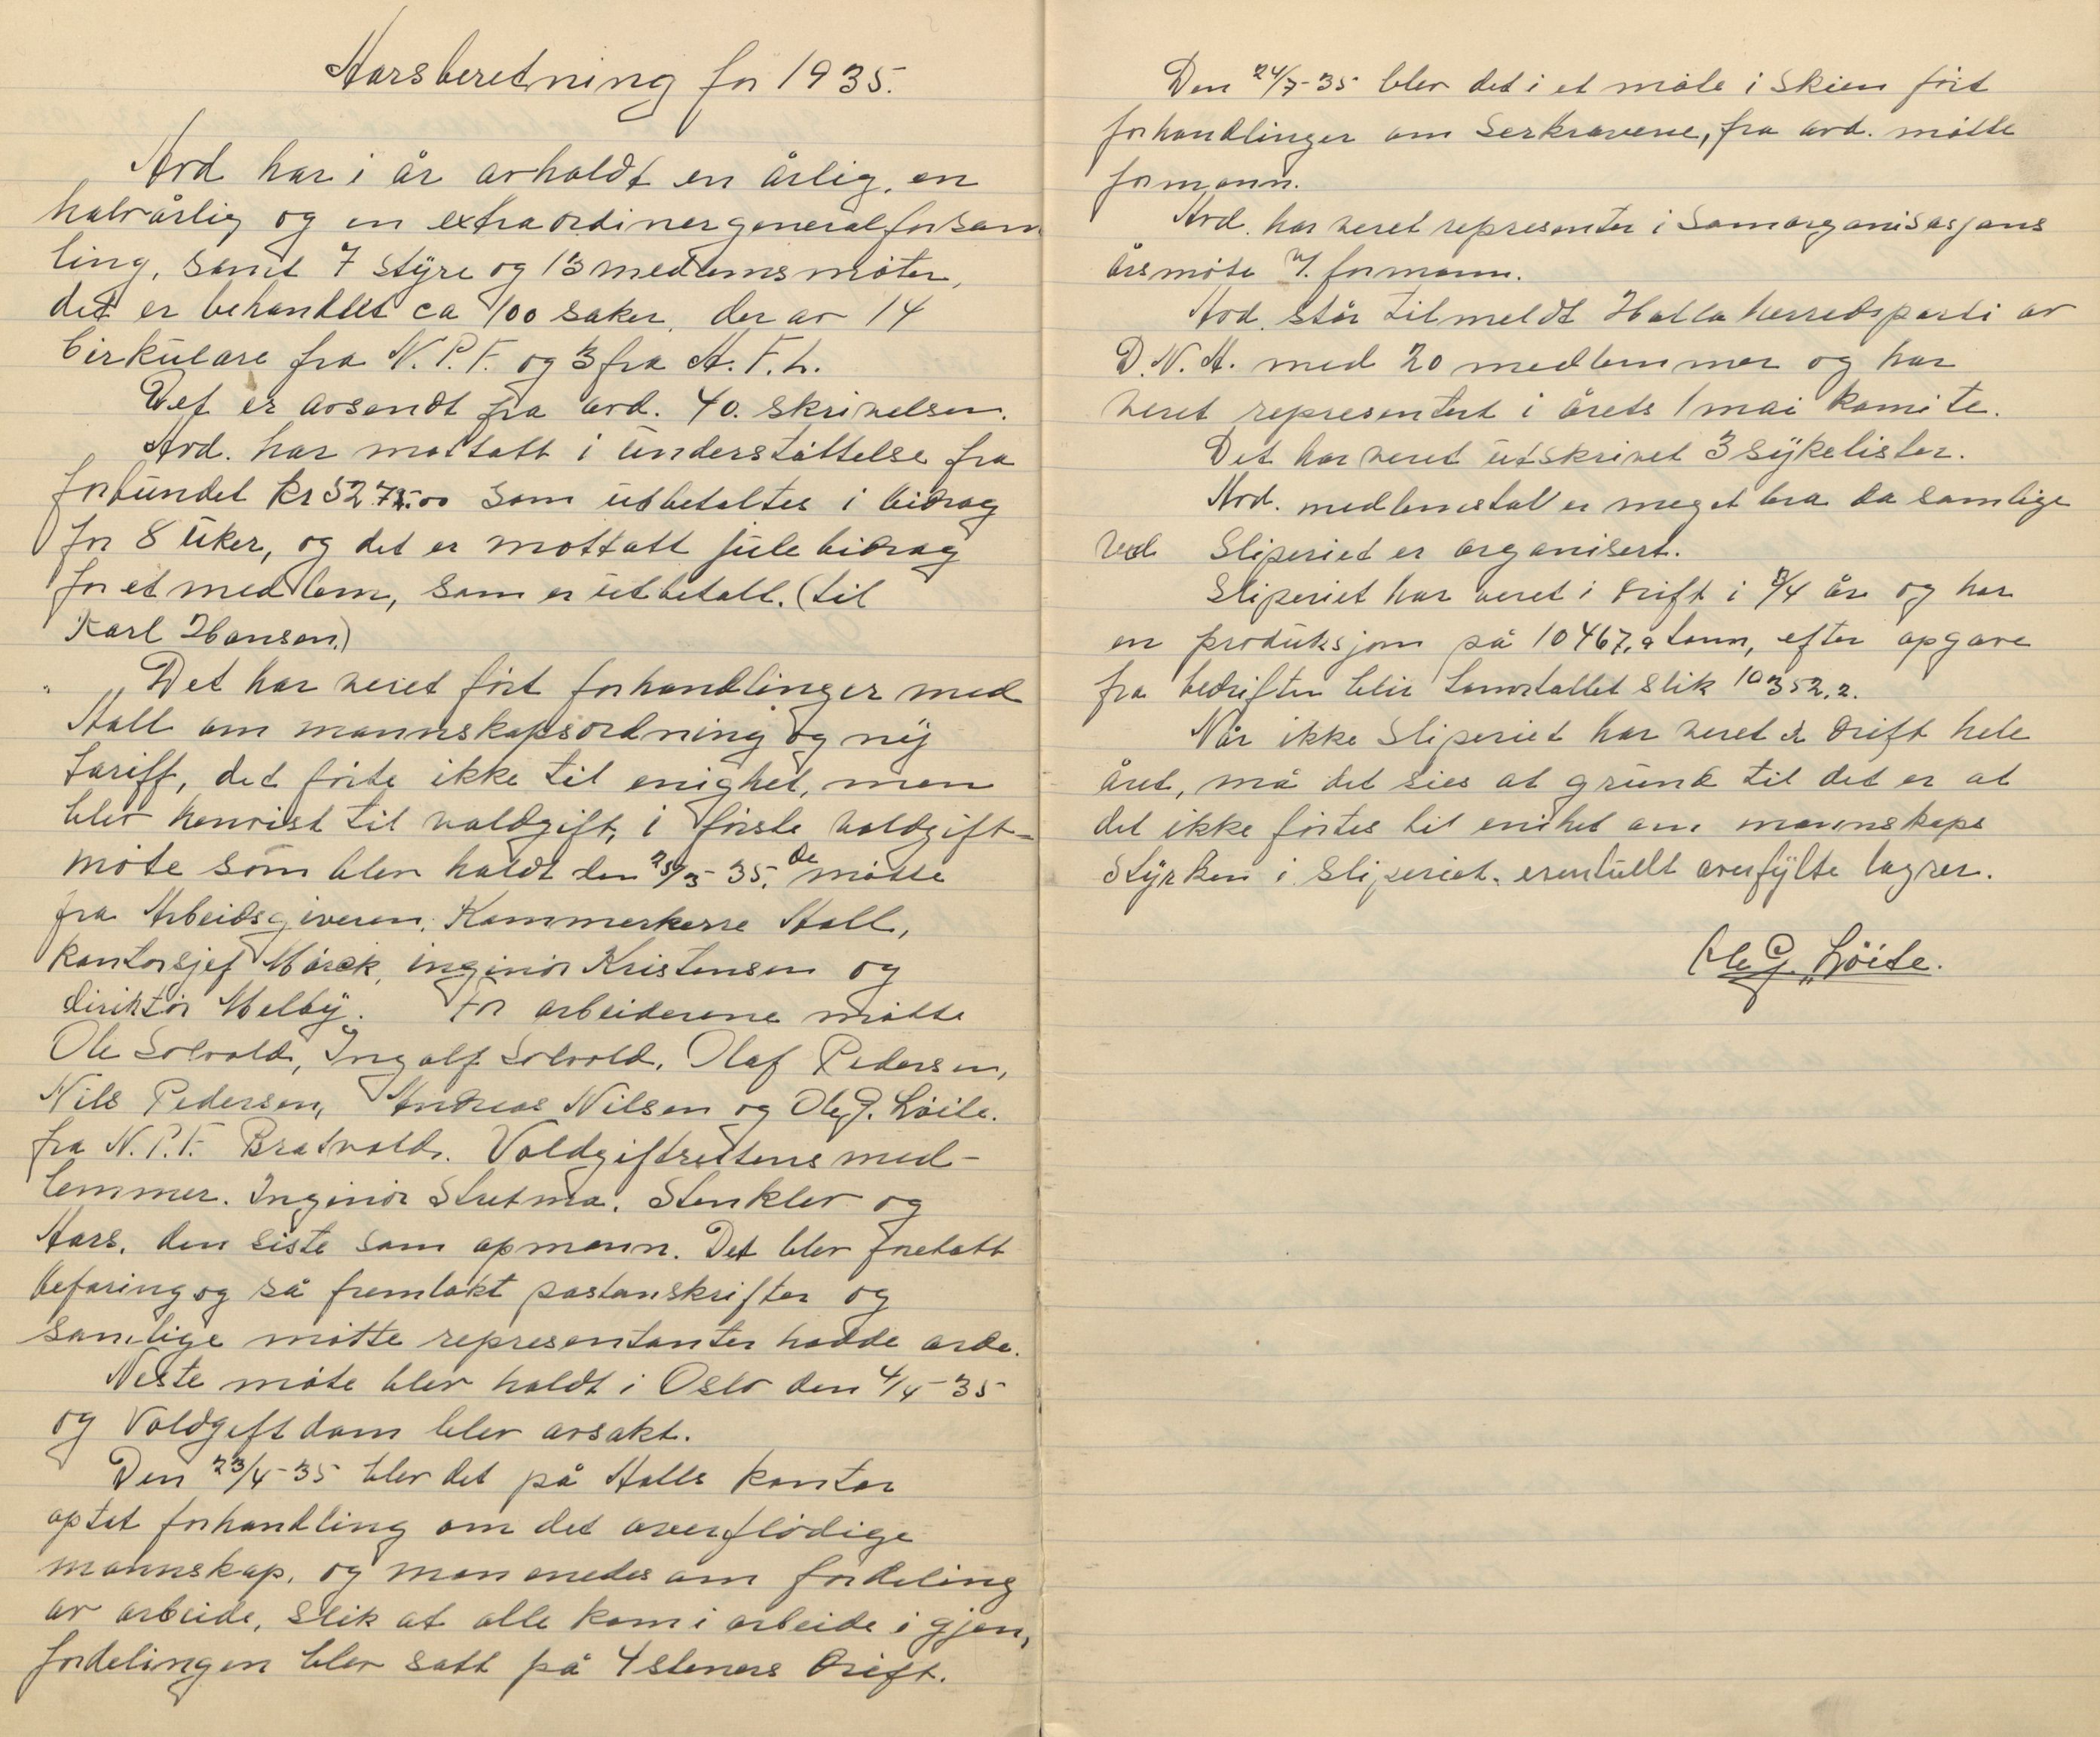 Aarsberetning for 1935.
Avd har i år avholdt en årlig, en
halvårlig og en extraordinergeneralforsam
ling, samt 7 styre og 13 medlemsmöter,
det er behandlet ca 100 saker, der av 14
Cirkulare fra N.P.F. og 3 fra A.F.L.
Det er avsendt fra avd. 40. skrivelser.
Avd. har mottatt i understöttelse fra
forbundet kr som utbetaltes i bidrag
for 8 uker, og det er mottatt julebidrag
for et medlem, som er utbetalt. (til
Karl Hansen.)
Det har veret fört forhandlinger med
Aall om mannskapsordning og ny
tariff, det förte ikke til enighet, men
blev henvist til voldgift, i förste voldgift-
möte som blev holdt den 25/3-35. de mötte
fra Arbeidsgiveren, Kammerherre Aall,
kontorsjef Mörck, inginör Kristensen og
diriktör Melby. For arbeiderene mötte
Ole Solvold, Ingolf Solvold, Olaf Pedersen,
Nils Pedersen, Andreas Nilsen og Ole G. Löite.
fra N.P.F. Bratvold. Voldgiftsrettens med-
lemmer. Inginör Stenklev og
Aars, den siste som opmann. Det blev foretatt
befaring og så fremlakt postanskrifter og
samlige mötte representanter hadde orde.
Neste möte blev holdt i Oslo den 4/4-35
og Voldgift dom blev avsakt.
Den 23/4-35 blev det på Aalls kontor
optat forhandling om det overflödige
mannskap, og man enedes om fordeling
av arbeide, slik at alle kom i arbeide i gjen,
fordelingen blev satt på 4 steners drift.
Den 24/7-35 blev det i et möte i Skien fört
forhandlinger om Serkravene, fra avd. mötte
formann.
Avd. har veret representer i Samorganisasjons
årsmöte v. formann.
Avd. står tilmeldt Holla herredsparti av
D.N.A. med 20 medlemmer og har
veret representert i årets 1 mai komite.
Det har veret utskrivet 3 sykelister.
Avd. medlemstal er meget bra da samlige
ved Sliperiet er organisert.
Sliperiet har veret i drift i 3/4 år og har
en produksjon på 10467,9 tonn, efter opgave
fra bedriften blir tonntallet slik 10352,2.
Når ikke Sliperiet har veret i drift hele
året, må det sies at grund til det er at
det ikke förtes til enihet om mannskaps
styrken i Sliperiet, eventuelt overfylte lagrer.
Ole G. Löite.